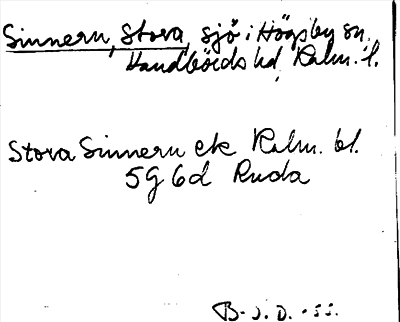 Sinnern, Stora, sjö i Högsby sn.
Handbörds hd, Kalm. l.
Stora Sinnern ek Kalm. bl.
5G 6d Ruda
B-J.D. -55.